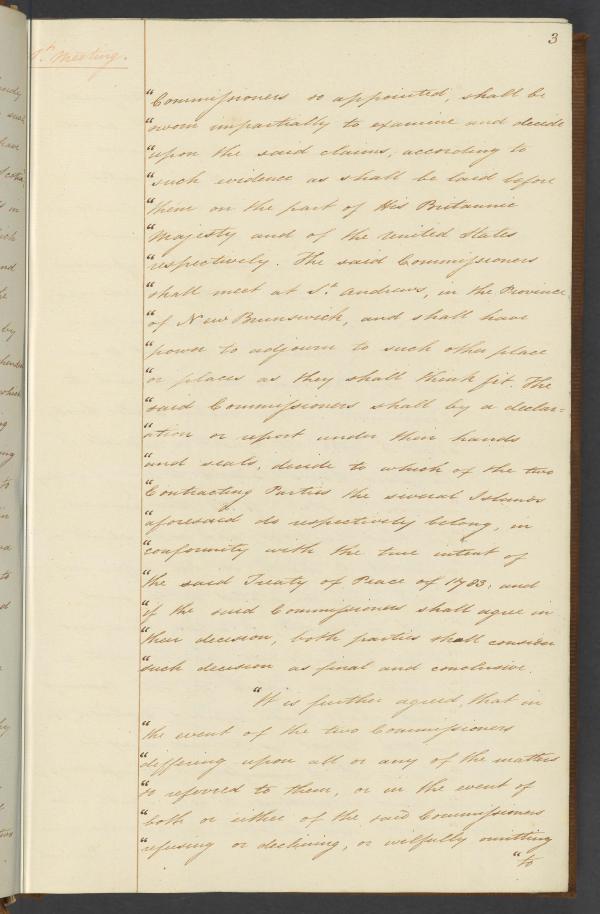 3
1st Meeting.
"Commissioners so appointed, shall be
"sworn impartially to examine and decide
"upon the said claims, according to
"such evidence as shall be laid before
"them on the part of His Britannic
"Majesty and of the United States
"respectively. The said Commissioners
"shall meet at St. Andrews, in the Province
"of New Brunswick, and shall have
"power to adjourn to such other place
"or places as they shall think fit. The
"said Commissioners shall by a declar=
"ation or report under their hands
"and seals, decide to which of the two
"Contracting Parties the several Islands
"aforesaid do respectively belong, in
"conformity with the true intent of
"the said Treaty of Peace of 1783; and
"if the said Commissioners shall agree in
"their decision, both parties shall consider
"such decision as final and conclusive.
"It is further agreed, that in
"the event of the two Commissioners
"differing upon all or any of the matters
"so referred to them, or in the event of
"both or either of the said Commissioners
"refusing or declining, or wilfully omitting
"to